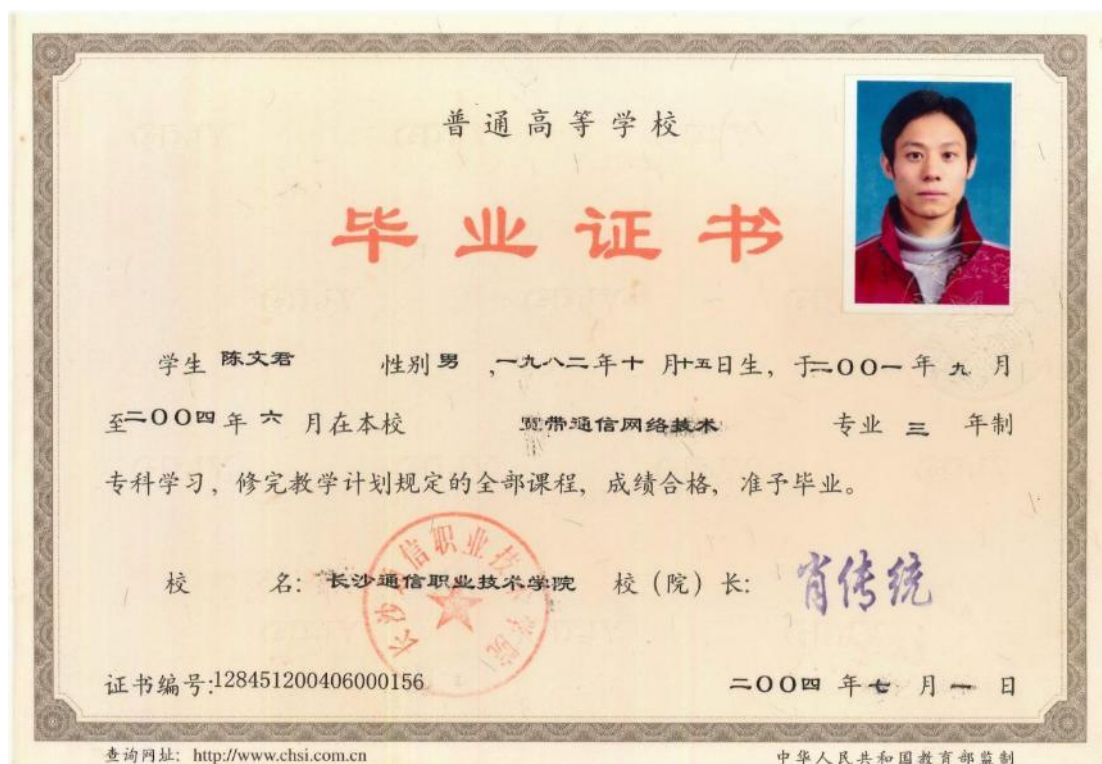 普通高等学校
毕业证书
学生 陈文君 性别 男 ,一九八二年十月十五日生, 于二OO一年九月
至二OO四年六月在本校 宽带通信网络技术 专业 三 年制
专科学习, 修完教学计划规定的全部课程, 成绩合格, 准予毕业。
校 名: 长沙通信职业技术学院 校(院)长: 肖传统
长沙通信职业技术学院
证书编号:128451200406000156 二OO四年七月一日
查询网址: http://www.chsi.com.cn 中华人民共和国教育部监制